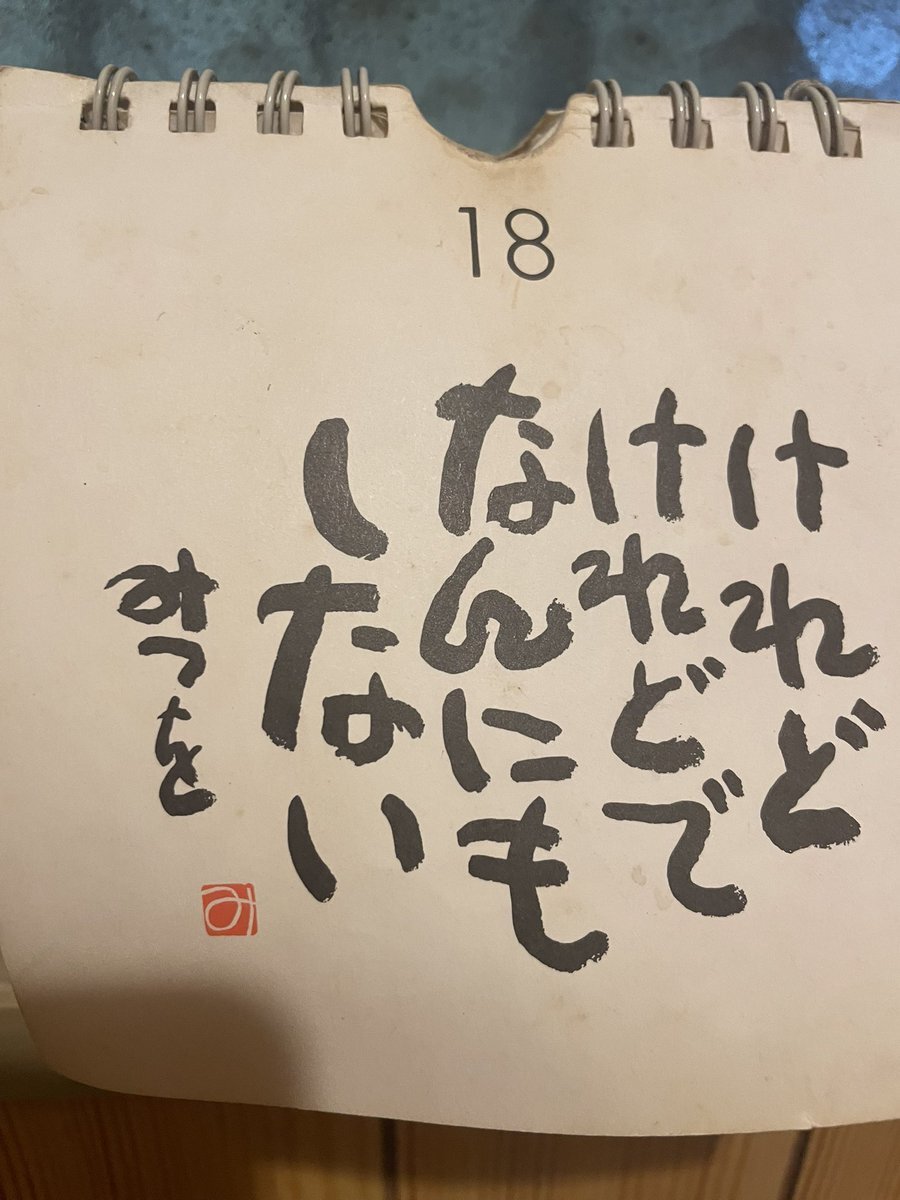 18
けれど
けれどで
なんにも
しない
みつを
み